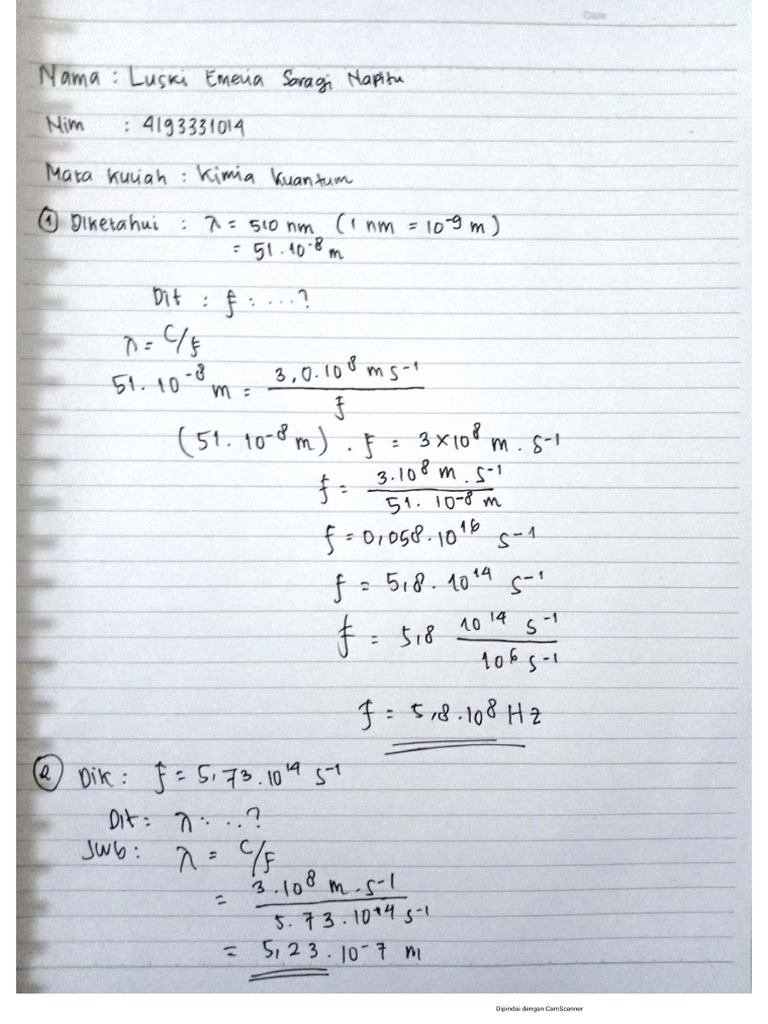 Date
Nama : Luski Emeria Saragi Napitu
Nim : 4193331014
Mata kuliah : Kimia Kuantum
① Diketahui : λ = 510 nm (1 nm = 10⁻⁹ m)
= 51 . 10⁻⁸ m
Dit : f : ....?
λ = C/f
51 . 10⁻⁸ m = 3,0 . 10⁸ m s⁻¹ / f
(51 . 10⁻⁸ m) . f = 3 × 10⁸ m . s⁻¹
f = 3 . 10⁸ m . s⁻¹ / 51 . 10⁻⁸ m
f = 0,058 . 10¹⁶ s⁻¹
f = 5,8 . 10¹⁴ s⁻¹
f = 5,8 10¹⁴ s⁻¹ / 10⁶ s⁻¹
f = 5,8 . 10⁸ Hz
② Dik : f = 5,73 . 10¹⁴ s⁻¹
Dit = λ : ...?
Jwb : λ = C/f
= 3 . 10⁸ m . s⁻¹ / 5.73 . 10¹⁴ s⁻¹
= 5,23 . 10⁻⁷ m
Dipindai dengan CamScanner